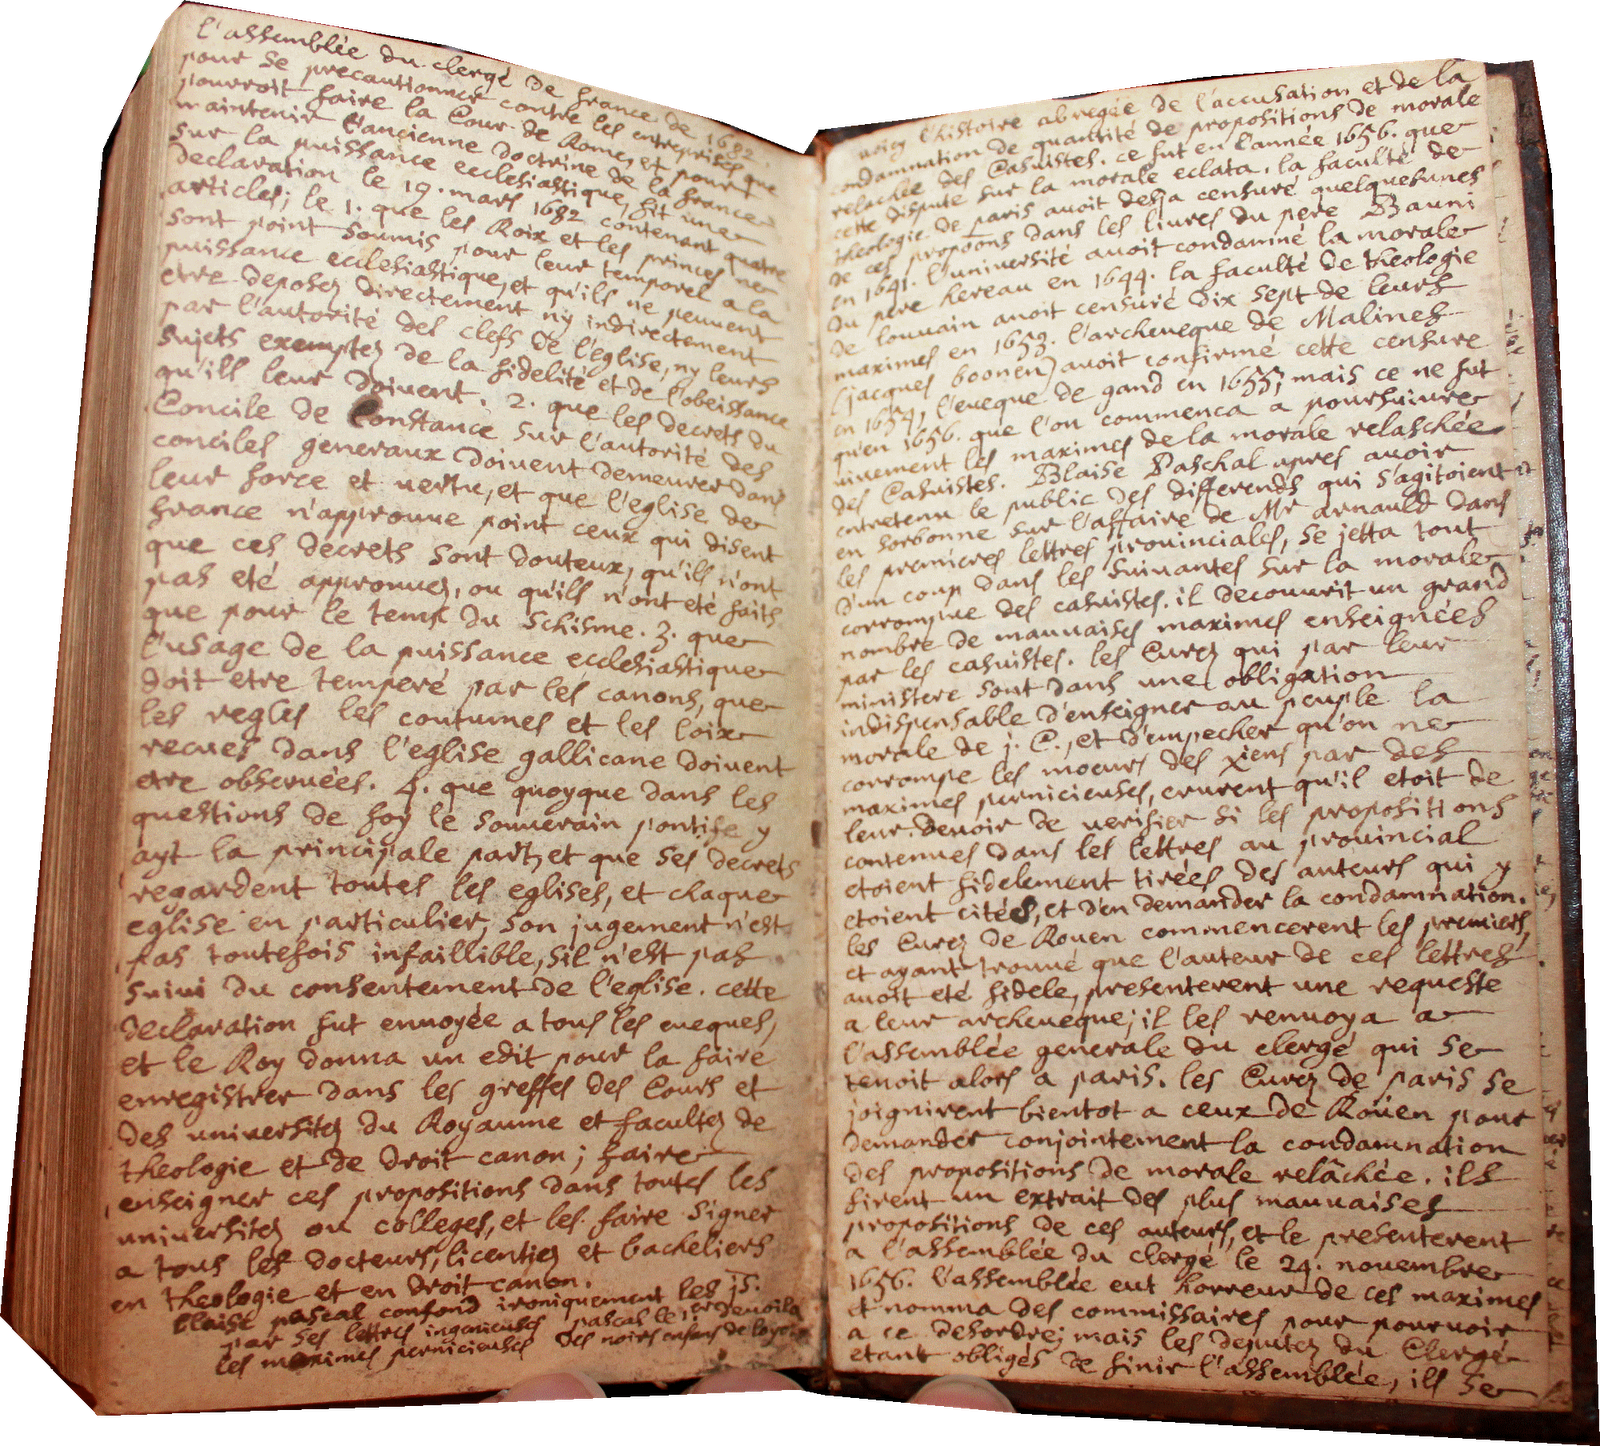 l'assemblée du clergé de france de 1682.
pour se precautionner contre les entreprises que
pourroit faire la Cour de Rome, et pour
maintenir l'ancienne doctrine de la france
sur la puissance ecclesiastique, fit une
declaration le 19. mars 1682 contenant quatre
articles; le 1. que les Roix et les princes ne
sont point soumis pour leur temporel a la
puissance ecclesiastique, et qu'ils ne peuvent
etre deposez directement ny indirectement
par l'autorité des clefs de l'eglise, ny leurs
sujets exemptez de la fidelité et de l'obeissance
qu'ils leur doivent. 2. que les decrets du
Concile de Constance sur l'autorité des
conciles generaux doivent demeurer dans
leur force et vertu, et que l'eglise de
france n'approuve point ceux qui disent
que ces decrets sont douteux, qu'ils n'ont
pas eté approuvez, ou qu'ils n'ont eté faits
que pour le temps du schisme. 3. que
l'usage de la puissance ecclesiastique
doit etre temperé par les canons, que
les regles les coutumes et les loix
recues dans l'eglise gallicane doivent
etre observées. 4. que quoyque dans les
questions de foy le souverain pontife y
ayt la principale part, et que ses decrets
regardent toutes les eglises, et chaque
eglise en particulier, son jugement n'est
pas toutefois infaillible, s'il n'est pas
suivi du consentement de l'eglise. cette
declaration fut envoyée a tous les eveques,
et le Roy donna un edit pour la faire
enregistrer dans les greffes des Cours et
des universitez du Royaume et facultez de
theologie et de droit canon; faire
enseigner ces propositions dans toutes les
universitez ou colleges, et les faire signer
a tous les docteurs, licentiez et bacheliers
en theologie et en droit canon.
blaise pascal confond ironiquement les js.
par ses lettres ingenieuses pascal le
les maximes pernicieuses des noirs enfans de loyola
voicy l'histoire abregée de l'accusation et de la
condamnation de quantité de propositions de morale
relachée des Casuistes. ce fut en l'année 1656. que
cette dispute sur la morale eclata. la faculté de
theologie de paris avoit desja censuré quelquesunes
de ces propõons dans les livres du pere Bauni
en 1641. l'université avoit condamné la morale
du pere hereau en 1644. la faculté de theologie
de louvain avoit censuré dix sept de leurs
maximes en 1653. l'archeveque de Malines
(jacques boonen) avoit confirmé cette censure
en 1654, l'eveque de gand en 1655; mais ce ne fut
qu'en 1656. que l'on commenca a poursuivre
vivement les maximes de la morale relaschée
des Casuistes. Blaise Paschal apres avoir
entretenu le public des differends qui s'agitoient
en sorbonne sur l'affaire de Mr arnauld dans
les premieres lettres provinciales, se jetta tout
d'un coup dans les suivantes sur la morale
corrompue des casuistes. il decouvrit un grand
nombre de mauvaises maximes enseignées
par les casuistes. les Curez qui par leur
ministere sont dans une obligation
indispensable d'enseigner au peuple la
morale de j. C., et d'empecher qu'on ne
corrompe les moeurs des xiens par des
maximes pernicieuses, crurent qu'il etoit de
leur devoir de verifier si les propositions
contenues dans les lettres au provincial
etoient fidelement tirées des auteurs qui y
etoient cités, et d'en demander la condamnation.
les Curez de Rouen commencerent les premiers,
et ayant trouvé que l'auteur de ces lettres
avoit eté fidele, presenterent une requeste
a leur archeveque; il les renvoya a
l'assemblée generale du clergé qui se
tenoit alors a paris. les Curez de paris se
joignirent bientot a ceux de Roüen pour
demander conjointement la condamnation
des propositions de morale relâchée. ils
firent un extrait des plus mauvaises
propositions de ces auteurs, et le presenterent
a l'assemblée du clergé le 24. novembre
1656. l'assemblée eut horreur de ces maximes
et nomma des commissaires pour pourvoir
a ce desordre; mais les deputez du Clergé
etant obligés de finir l'assemblée, ils se